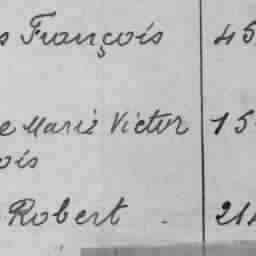 s François 45
e Marie Victor 15
ois
Robert 21